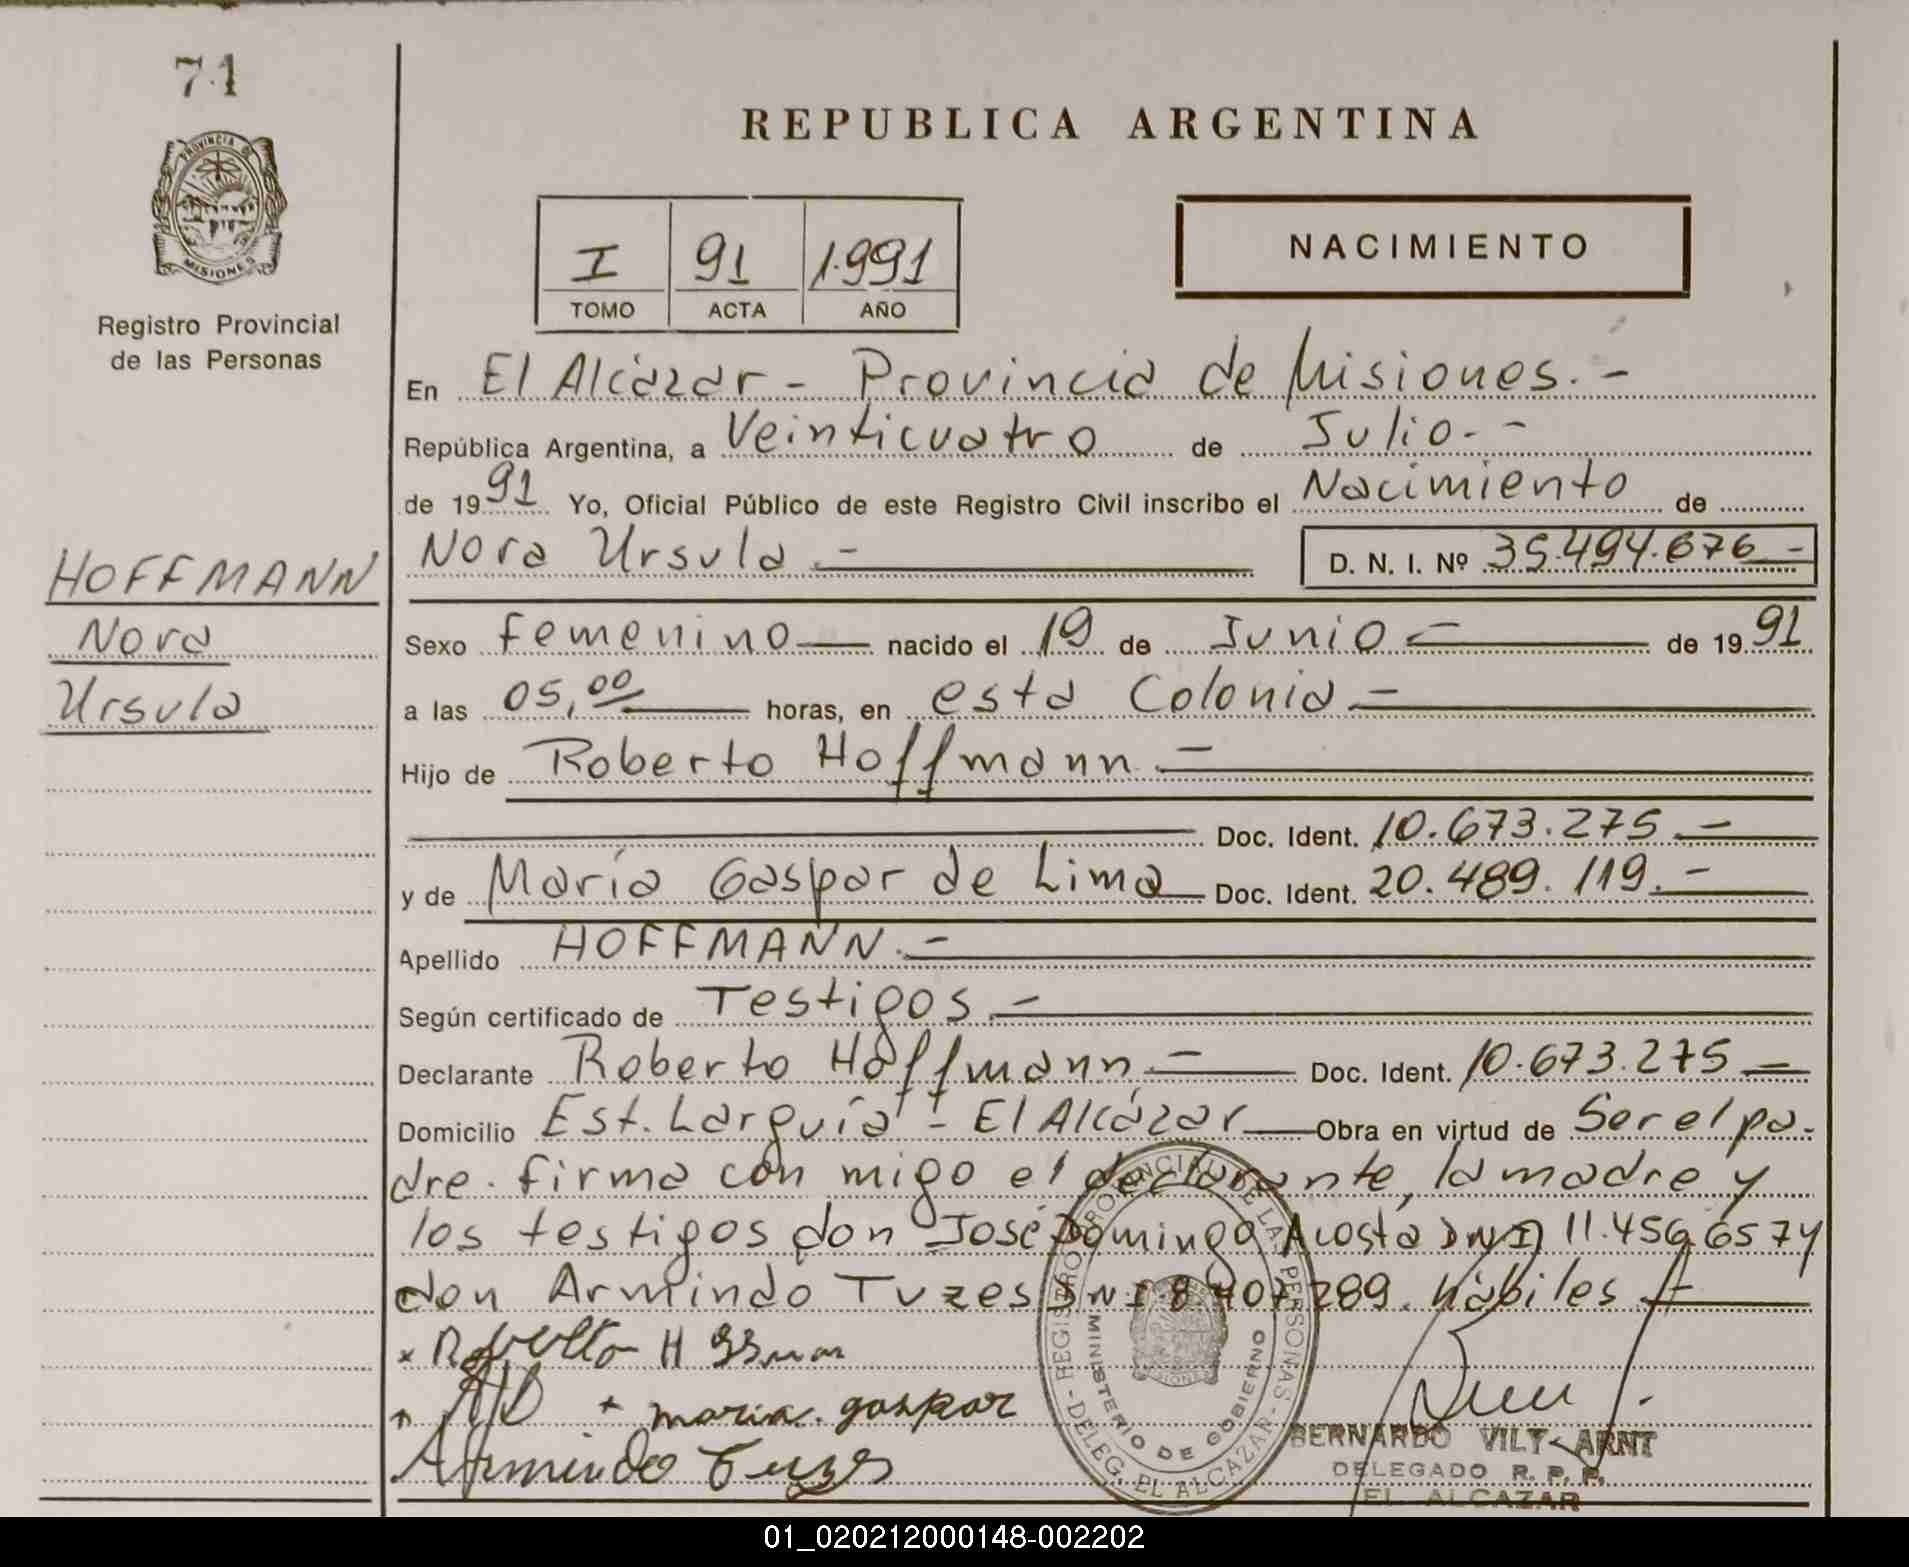 71
PROVINCIA DE
MISIONES
Registro Provincial
de las Personas
HOFFMANN
Nora
Ursula
REPUBLICA ARGENTINA
I 91 1.991
TOMO ACTA AÑO
NACIMIENTO
En El Alcázar - Provincia de Misiones. -
República Argentina, a Veinticuatro de Julio. -
de 1991 Yo, Oficial Público de este Registro Civil inscribo el Nacimiento de
Nora Ursula - D. N. I. Nº 35.494.676 -
Sexo femenino nacido el 19 de Junio - de 1991
a las 05,00 horas, en esta Colonia -
Hijo de Roberto Hoffmann -
Doc. Ident. 10.673.275. -
y de María Gaspar de Lima Doc. Ident. 20.489.119. -
Apellido HOFFMANN. -
Según certificado de Testigos -
Declarante Roberto Hoffmann - Doc. Ident. 10.673.275 -
Domicilio Est. Larguía - El Alcázar Obra en virtud de Ser el pa-
dre. firma con migo el declarante, la madre y
los testigos don José Domingo Acosta DNI 11.456.657 y
don Armindo Tuzes DNI 8.407.289. hábiles -
x Roberto
x maria. gaspar
Armindo Tuzes
REGISTRO PROVINCIAL DE LAS PERSONAS - DELEG. EL ALCAZAR -
MINISTERIO DE GOBIERNO
MISIONES
BERNARDO VILY ARNT
DELEGADO R. P. P.
EL ALCAZAR
01_020212000148-002202